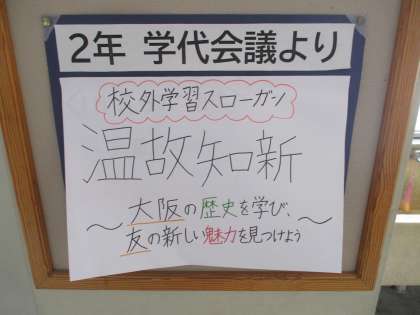 2年 学代会議より
校外学習スローガン
温故知新
～大阪の歴史を学び、
友の新しい魅力を見つけよう～